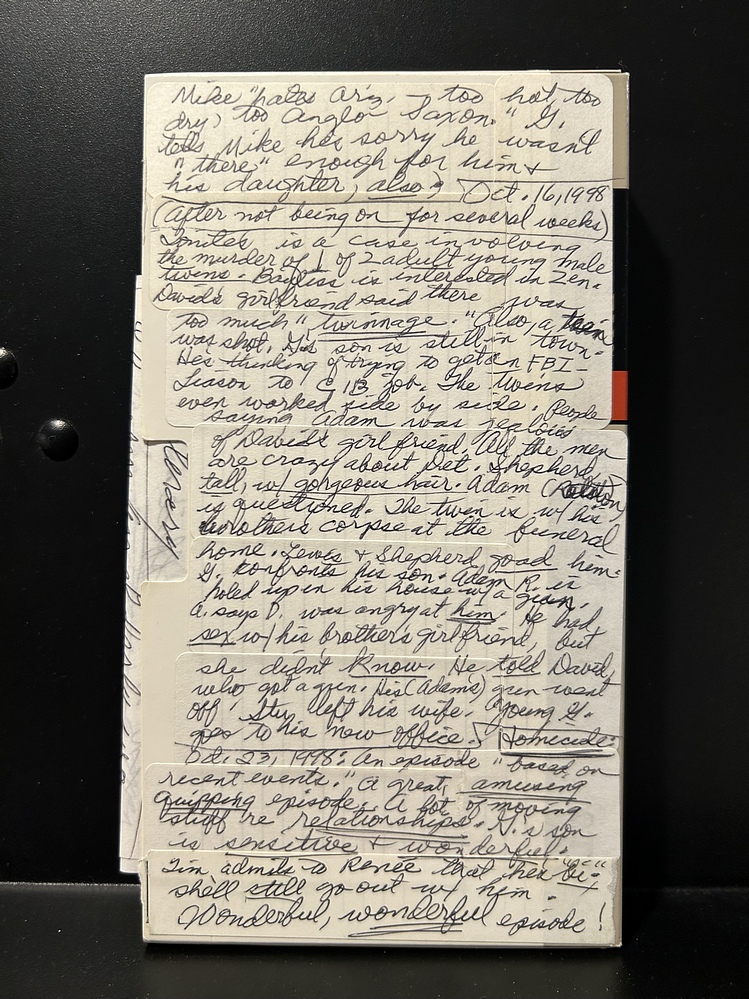 Mike "hates Ariz. too hot, too
dry, too Anglo Saxon." G.
tells Mike he's sorry he wasn't
"there" enough for him +
his daughter, also; Oct. 16, 1998
(after not being on for several weeks)
Tonite's is a case involving
the murder of 1 of 2 adult young male
twins. Bayliss is interested in Zen.
David's girlfriend said there was
too much "twinnage." Also, a teen
was shot. G.'s son is still in town.
He's thinking of trying to get an FBI-
Liason to C.I.B. job. The twins
even worked side by side. People
saying Adam was jealous
of David's girlfriend. All the men
are crazy about Det. Shepherd,
tall, w/ gorgeous hair. Adam
is questioned. The twin is w/ his
brothers corpse at the funeral
home. Lewis + Shepherd goad him.
G. confronts his son. Adam R. is
holed up in his house w/ a gun.
A. says D. was angry at him. He had
sex w/ his brother's girlfriend, but
she didn't know. He told David,
who got a gun. His (Adam's) gun went
off. Stu. left his wife. "Young G.
goes to his new office. Homicide:
Oct. 23, 1998: An episode "based on
recent events." A great, amusing
quipping episode. A lot of moving
stuff re relationships. G.'s son
is sensitive + wonderful.
Tim admits to Renee that he's "bi-"
shell still go out w/ him.
Wonderful, wonderful episode!